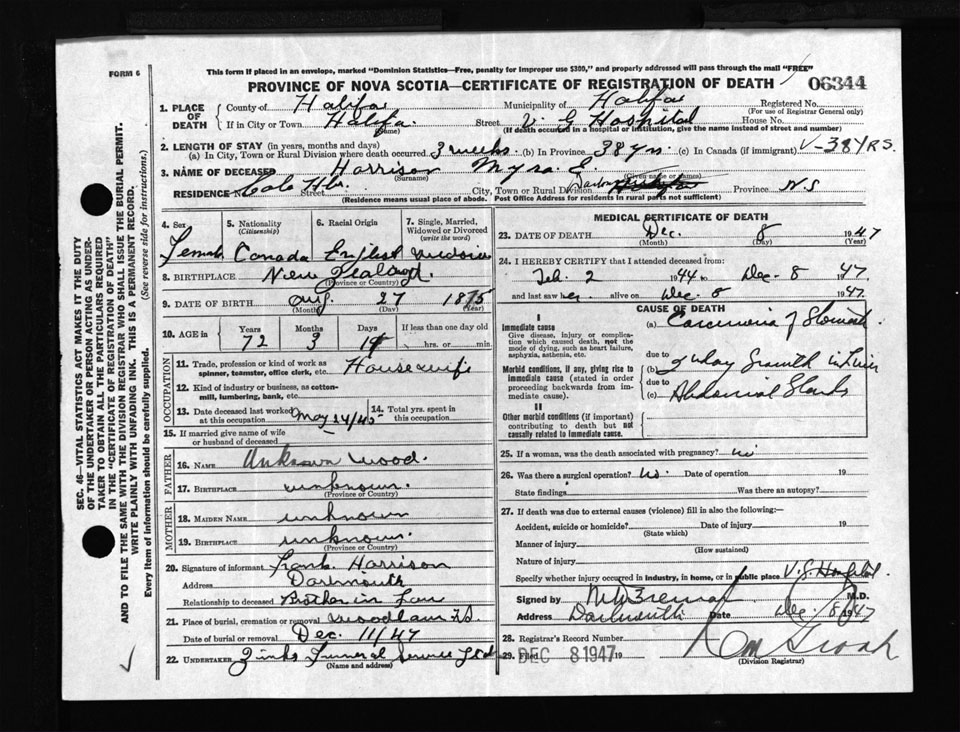 This form if placed in an envelope, marked "Dominion Statistics—Free, penalty for improper use $300," and properly addressed will pass through the mail "FREE"
FORM 6
PROVINCE OF NOVA SCOTIA—CERTIFICATE OF REGISTRATION OF DEATH 06344
1. PLACE OF DEATH County of Halifax Municipality of Halifax Registered No.
(For use of Registrar General only)
If in City or Town Halifax Street V G Hospital House No.
(Name) (If death occurred in a hospital or institution, give the name instead of street and number)
2. LENGTH OF STAY (in years, months and days)
(a) In City, Town or Rural Division where death occurred 3 weeks. (b) In Province 38 yrs. (c) In Canada (if immigrant) V-38 YRS.
3. NAME OF DECEASED Harrison Myra E.
(Surname) (Given name or names)
RESIDENCE Cole Hbr. Street City, Town or Rural Division Province N S
(Residence means usual place of abode. Post Office Address for residents in rural parts not sufficient)
4. Sex Female
5. Nationality (Citizenship) Canada
6. Racial Origin English
7. Single, Married, Widowed or Divorced (write the word)
8. BIRTHPLACE New Zealand
(Province or Country)
9. DATE OF BIRTH Aug. 27 1875
(Month) (Day) (Year)
10. AGE in Years Months Days If less than one day old
72 3 hrs. or min.
OCCUPATION
11. Trade, profession or kind of work as spinner, teamster, office clerk, etc. Housewife
12. Kind of industry or business, as cotton-mill, lumbering, bank, etc.
13. Date deceased last worked at this occupation May 24/45
14. Total yrs. spent in this occupation
15. If married give name of wife or husband of deceased
FATHER
16. NAME Unknown Wood.
17. BIRTHPLACE unknown.
(Province or Country)
MOTHER
18. MAIDEN NAME unknown
19. BIRTHPLACE unknown.
(Province or Country)
20. Signature of informant Frank Harrison
Address Dartmouth
Relationship to deceased Brother in Law
21. Place of burial, cremation or removal Woodlawn
Date of burial or removal Dec. 11/47
22. UNDERTAKER Zinks Funeral Service Ltd
(Name and address)
MEDICAL CERTIFICATE OF DEATH
23. DATE OF DEATH Dec. 8 1947
(Month) (Day) (Year)
24. I HEREBY CERTIFY that I attended deceased from:
Feb. 2 1944 to Dec. 8 1947
and last saw her alive on Dec. 8 1947.
CAUSE OF DEATH
I
Immediate cause
Give disease, injury or complication which caused death, not the mode of dying, such as heart failure, asphyxia, asthenia, etc.
(a) Carcinoma of Stomach
due to
Morbid conditions, if any, giving rise to immediate cause (stated in order proceeding backwards from immediate cause).
(b) 2ndary Growth in Liver
due to
(c) Abdominal Glands
II
Other morbid conditions (if important) contributing to death but not causally related to immediate cause.
25. If a woman, was the death associated with pregnancy? no
26. Was there a surgical operation? no Date of operation 19
State findings Was there an autopsy?
27. If death was due to external causes (violence) fill in also the following:—
Accident, suicide or homicide? Date of injury 19
(State which)
Manner of injury
(How sustained)
Nature of injury
Specify whether injury occurred in industry, in home, or in public place V.G. Hospital
Signed by M.D.
Address Dartmouth Date Dec. 8 1947
28. Registrar's Record Number
29. Filed DEC 8 1947 19
(Division Registrar)
SEC. 46—VITAL STATISTICS ACT MAKES IT THE DUTY
OF THE UNDERTAKER OR PERSON ACTING AS UNDER-
TAKER TO OBTAIN ALL THE PARTICULARS REQUIRED
IN THE "CERTIFICATE OF REGISTRATION OF DEATH"
AND TO FILE THE SAME WITH THE DIVISION REGISTRAR WHO SHALL ISSUE THE BURIAL PERMIT.
WRITE PLAINLY WITH UNFADING INK. THIS IS A PERMANENT RECORD.
Every item of information should be carefully supplied. (See reverse side for instructions.)